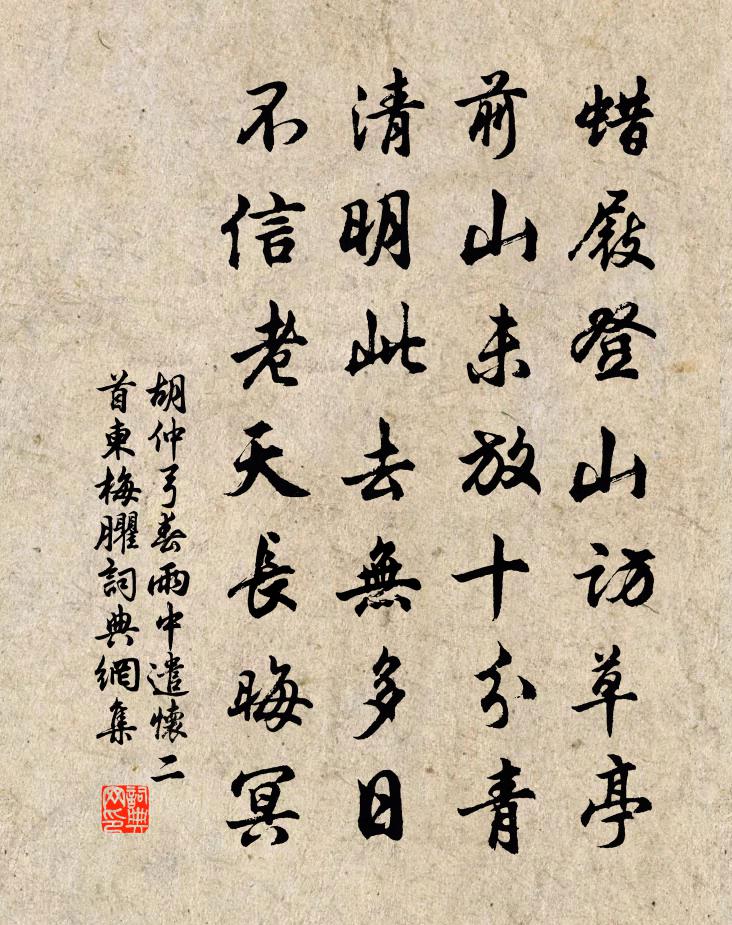 蜡屐登山訪草亭
前山未放十分青
清明此去無多日
不信老天長晦冥
胡仲弓春雨中遣懷二
首東梅臞詞典網集
詞典
网印